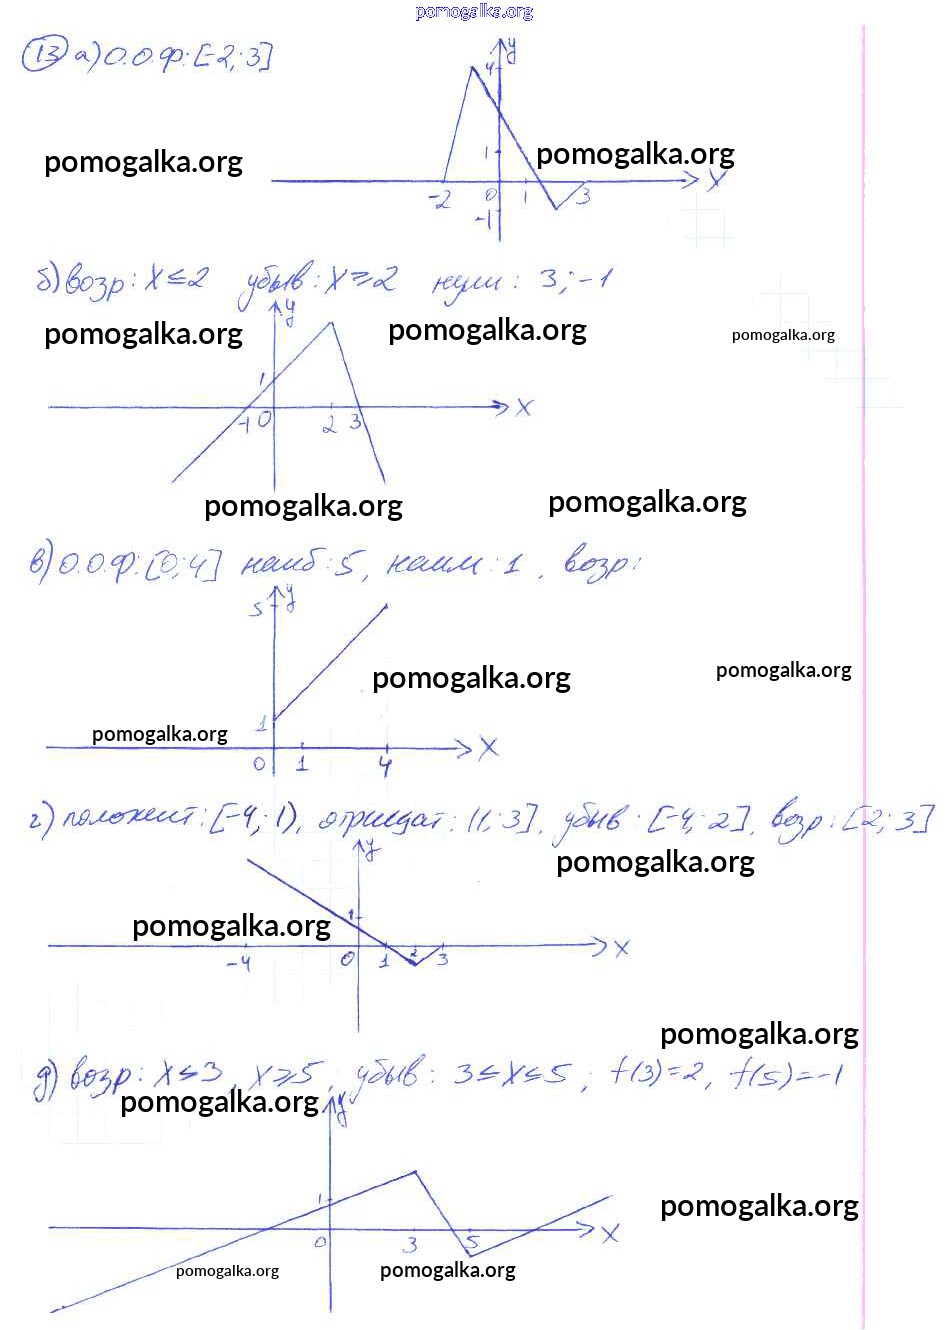 pomogalka.org
13 а) О.О.Ф: [-2; 3]
y
4
pomogalka.org pomogalka.org
1
-2 0 1 3 X
-1
б) возр: X ≤ 2 убыв: X ≥ 2 нули: 3; -1
y
pomogalka.org pomogalka.org pomogalka.org
1
-1 0 2 3 X
pomogalka.org pomogalka.org
в) О.О.Ф: [0; 4] наиб: 5, наим: 1, возр:
5 y
pomogalka.org pomogalka.org
1
pomogalka.org
0 1 4 X
г) положит: [-4; 1), отрицат: (1; 3], убыв: [-4; 2], возр: [2; 3]
y
pomogalka.org
1
pomogalka.org
-4 0 1 2 3 X
pomogalka.org
д) возр: X ≤ 3, X ≥ 5, убыв: 3 ≤ X ≤ 5; f(3) = 2, f(5) = -1
pomogalka.org y
1
pomogalka.org
0 3 5 X
pomogalka.org pomogalka.org